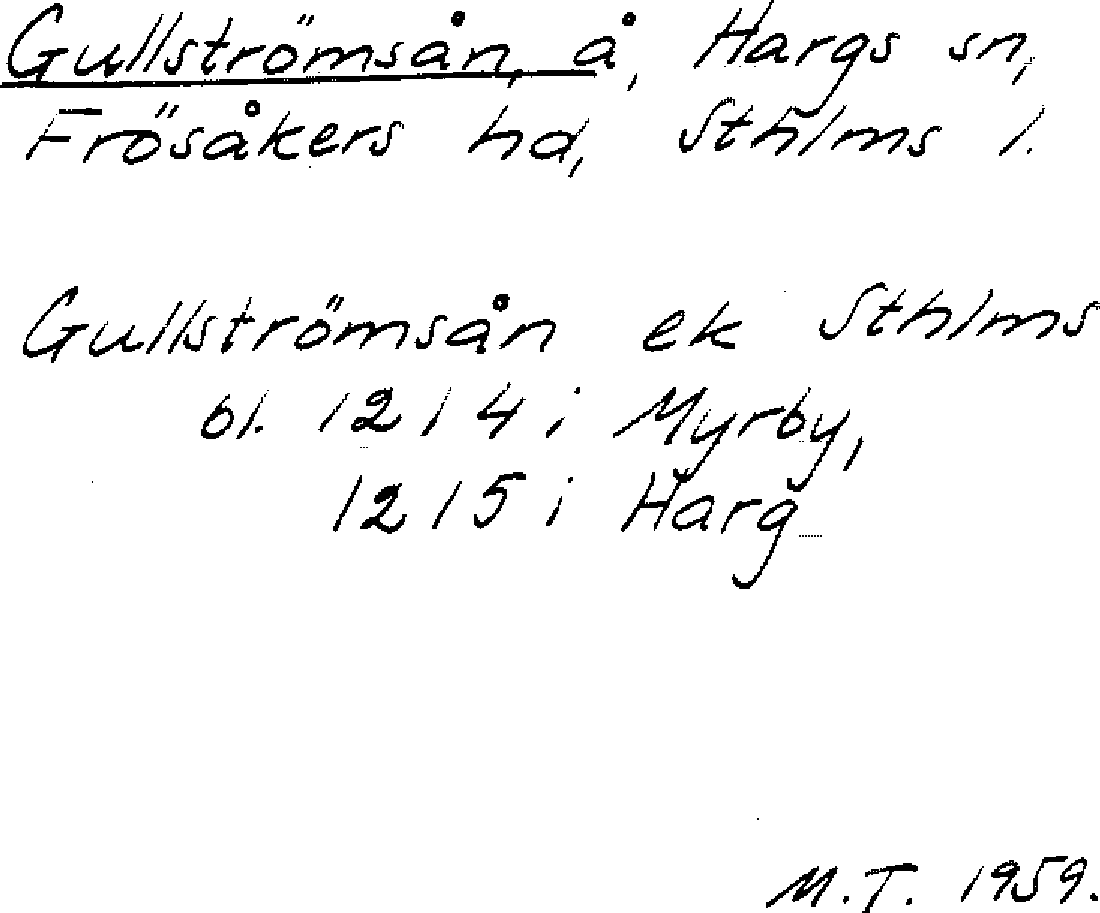 Gullströmsån, å, Hargs sn,
Frösåkers hd, Sthlms l.
Gullströmsån ek Sthlms
bl. 12 1 4 i Myrby,
12 1 5 i Harg
M.T. 1959.